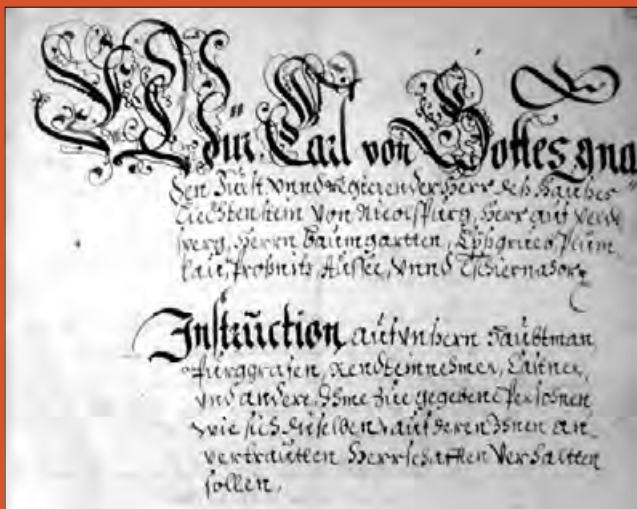 Wir Carl von Gottes gna
den Fürst vnnd regierender Herr deß Hauses
Liechtenstein von Nicolspurg, Herr auf Veld
sperg, Herrn Baumgartten, Eyßgrueb, Plum
lau, Proßnitz, Aussee, vnnd Tschernahor
Instruction auf vnsern Haubtman
Purggrafen, Rendteinnehmer,
vnd andere Ihme zue gegebene Persohnen
wie sich dieselben auf deren Ihnen an
vertrautten Herrschafften verhaltten
sollen.